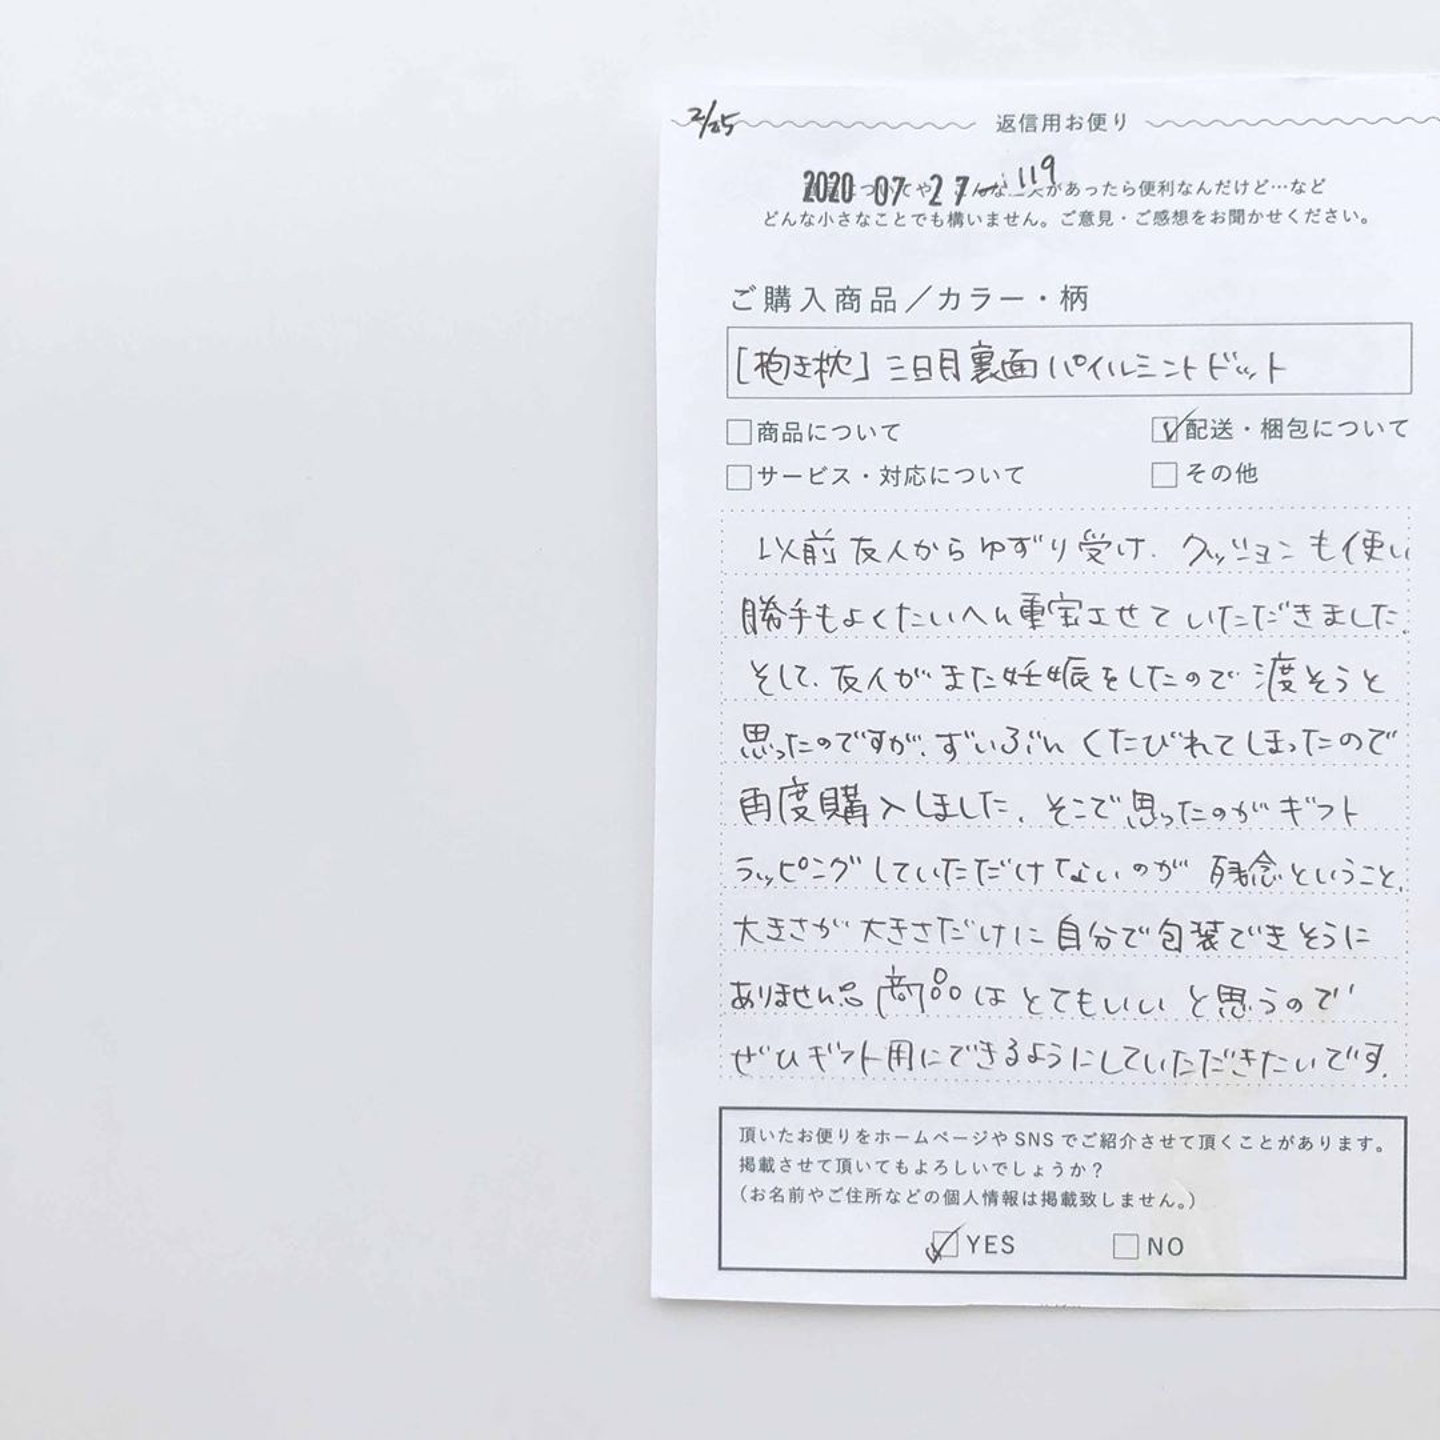 2/25
返信用お便り
2020 07 27 119
についてや こんな があったら便利なんだけど…など
どんな小さなことでも構いません。ご意見・ご感想をお聞かせください。
ご購入商品／カラー・柄
[抱き枕] 三日月裏面パイルミントドット
商品について
配送・梱包について
サービス・対応について
その他
以前友人からゆずり受け、クッションも使い
勝手もよくたいへん重宝させていただきました。
そして、友人がまた妊娠をしたので渡そうと
思ったのですが、ずいぶんくたびれてしまったので
再度購入しました。そこで思ったのがギフト
ラッピングしていただけないのが残念ということ。
大きさが大きさだけに自分で包装できそうに
ありません。商品はとてもいいと思うので
ぜひギフト用にできるようにしていただきたいです。
頂いたお便りをホームページやSNSでご紹介させて頂くことがあります。
掲載させて頂いてもよろしいでしょうか？
（お名前やご住所などの個人情報は掲載致しません。）
YES
NO